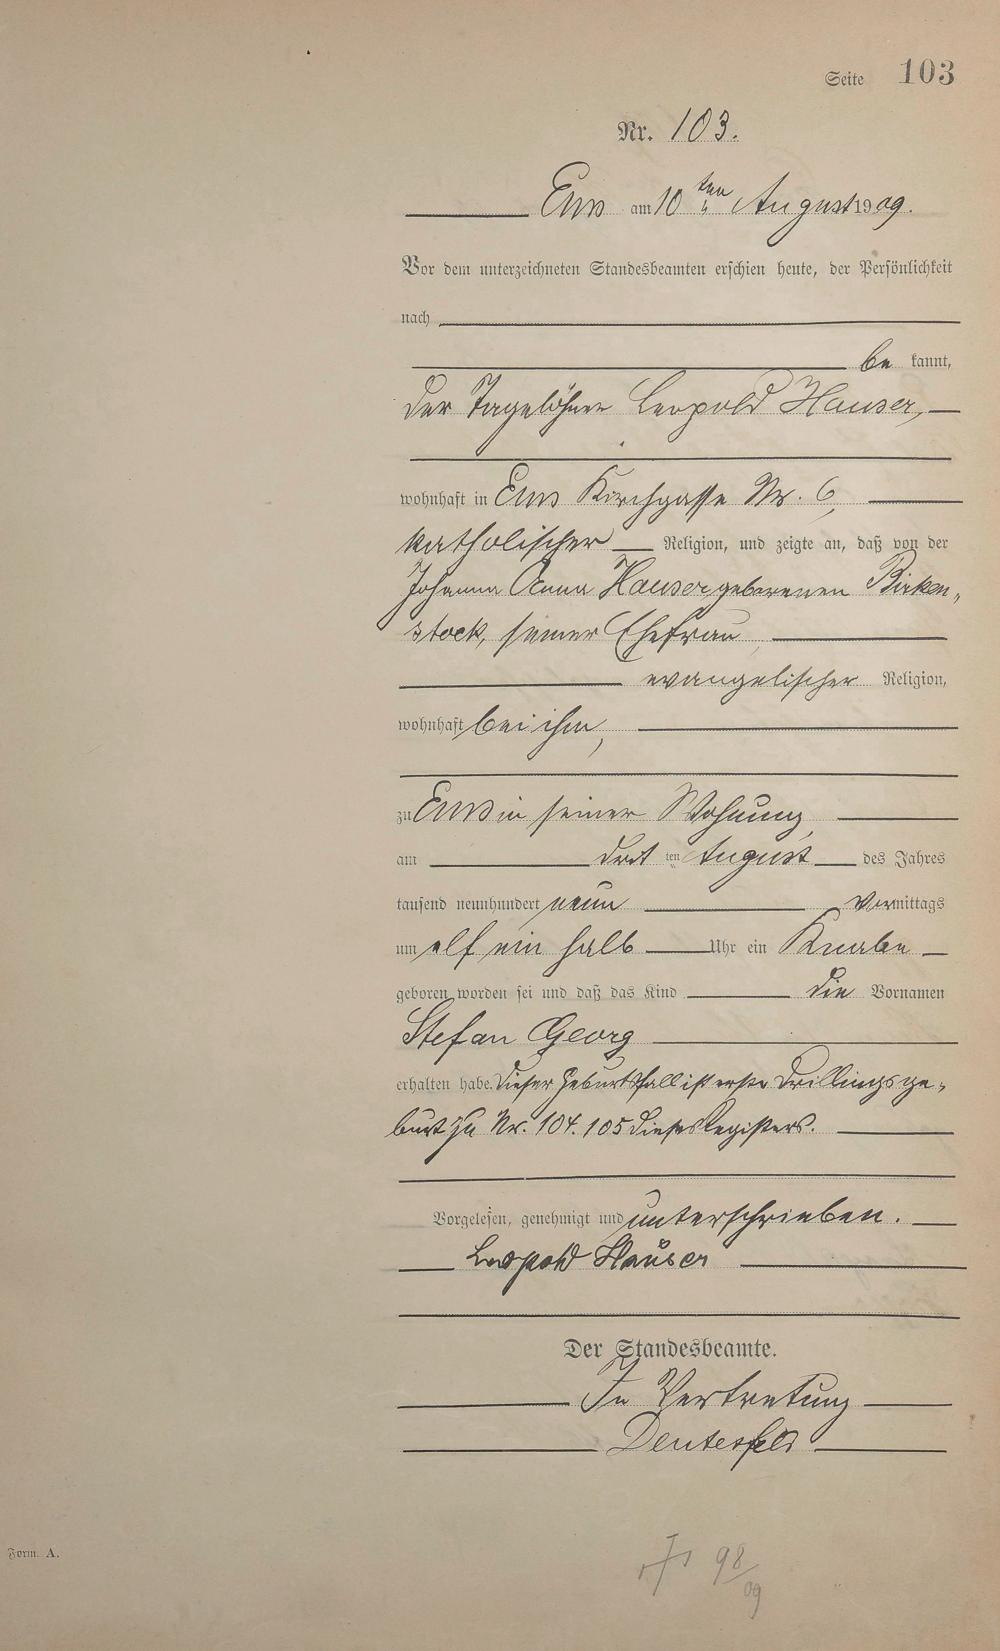 Seite 103
Nr. 103.
Ems am 10ten August 1909.
Vor dem unterzeichneten Standesbeamten erschien heute, der Persönlichkeit
nach
be kannt,
der Tagelöhner Leopold Hauser,
wohnhaft in Ems Kirchgasse Nr. 6,
katholischer Religion, und zeigte an, daß von der
Johanna Anna Hauser geborenen Birken„
stock, seiner Ehefrau,
evangelischer Religion,
wohnhaft bei ihm,
zu Ems in seiner Wohnung,
am drit ten August des Jahres
tausend neunhundert neun Vormittags
um elf ein halb Uhr ein Knabe
geboren worden sei und daß das Kind die Vornamen
Stefan Georg
erhalten habe. Dieser Geburtsfall ist erste Drillingsge„
burt zu Nr. 104. 105 dieses Registers.
Vorgelesen, genehmigt und unterschrieben.
Leopold Hauser
Der Standesbeamte.
In Vertretung
Deutesfeld
Form. A.
98/09